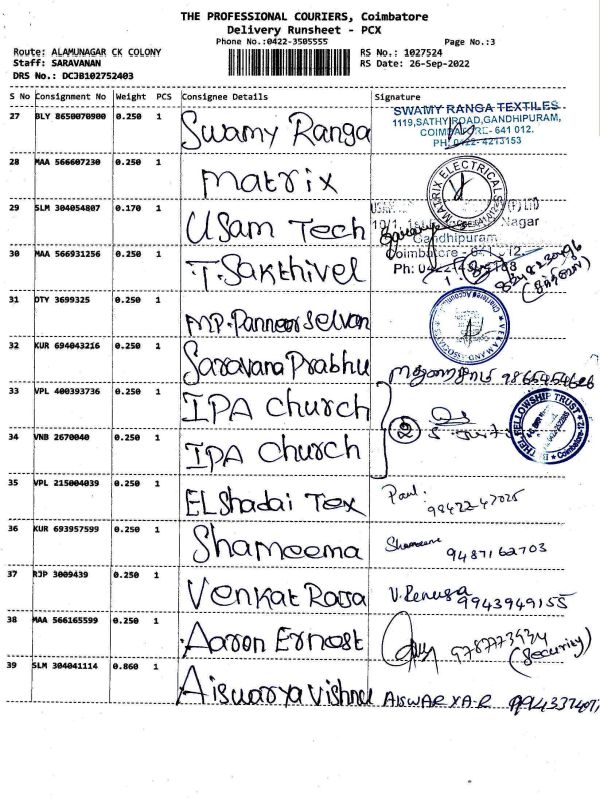 THE PROFESSIONAL COURIERS, Coimbatore
Delivery Runsheet - PCX
Phone No.:0422-3505555 Page No.:3
Route: ALAMUNAGAR CK COLONY RS No.: 1027524
Staff: SARAVANAN RS Date: 26-Sep-2022
DRS No.: DCJB102752403
S No Consignment No Weight PCS Consignee Details Signature
27 BLY 8650070900 0.250 1 Swamy Ranga
SWAMY RANGA TEXTILES
1119,SATHY ROAD,GANDHIPURAM,
COIMBATORE- 641 012.
PH:0422- 4213153
28 MAA 566607230 0.250 1 Matrix
MATRIX ELECTRICALS
29 SLM 304054807 0.170 1 Usam Tech
(P) LTD
Nagar
Gandhipuram
Coimbatore - 641 012
30 MAA 566931256 0.250 1 T.Sakthivel
31 DTY 3699325 0.250 1 M.P.Panneerselvan
Chartered Accountants
32 KUR 694043216 0.250 1 Saravana Prabhu
33 VPL 400393736 0.250 1 IPA Church
FELLOWSHIP TRUST
34 VNB 2670040 0.250 1 IPA Church
35 VPL 215004039 0.250 1 ELShadai Tex Paul: 98422-47025
36 KUR 693957599 0.250 1 Shameema Shameema 9487162703
37 RJP 3009439 0.250 1 Venkat Raja V.Renuga 9943949155
38 MAA 566165599 0.250 1 Aaron Ernest 9787773934
(Security)
39 SLM 304041114 0.860 1 Aiswarya Vishnu AISWARYA.R